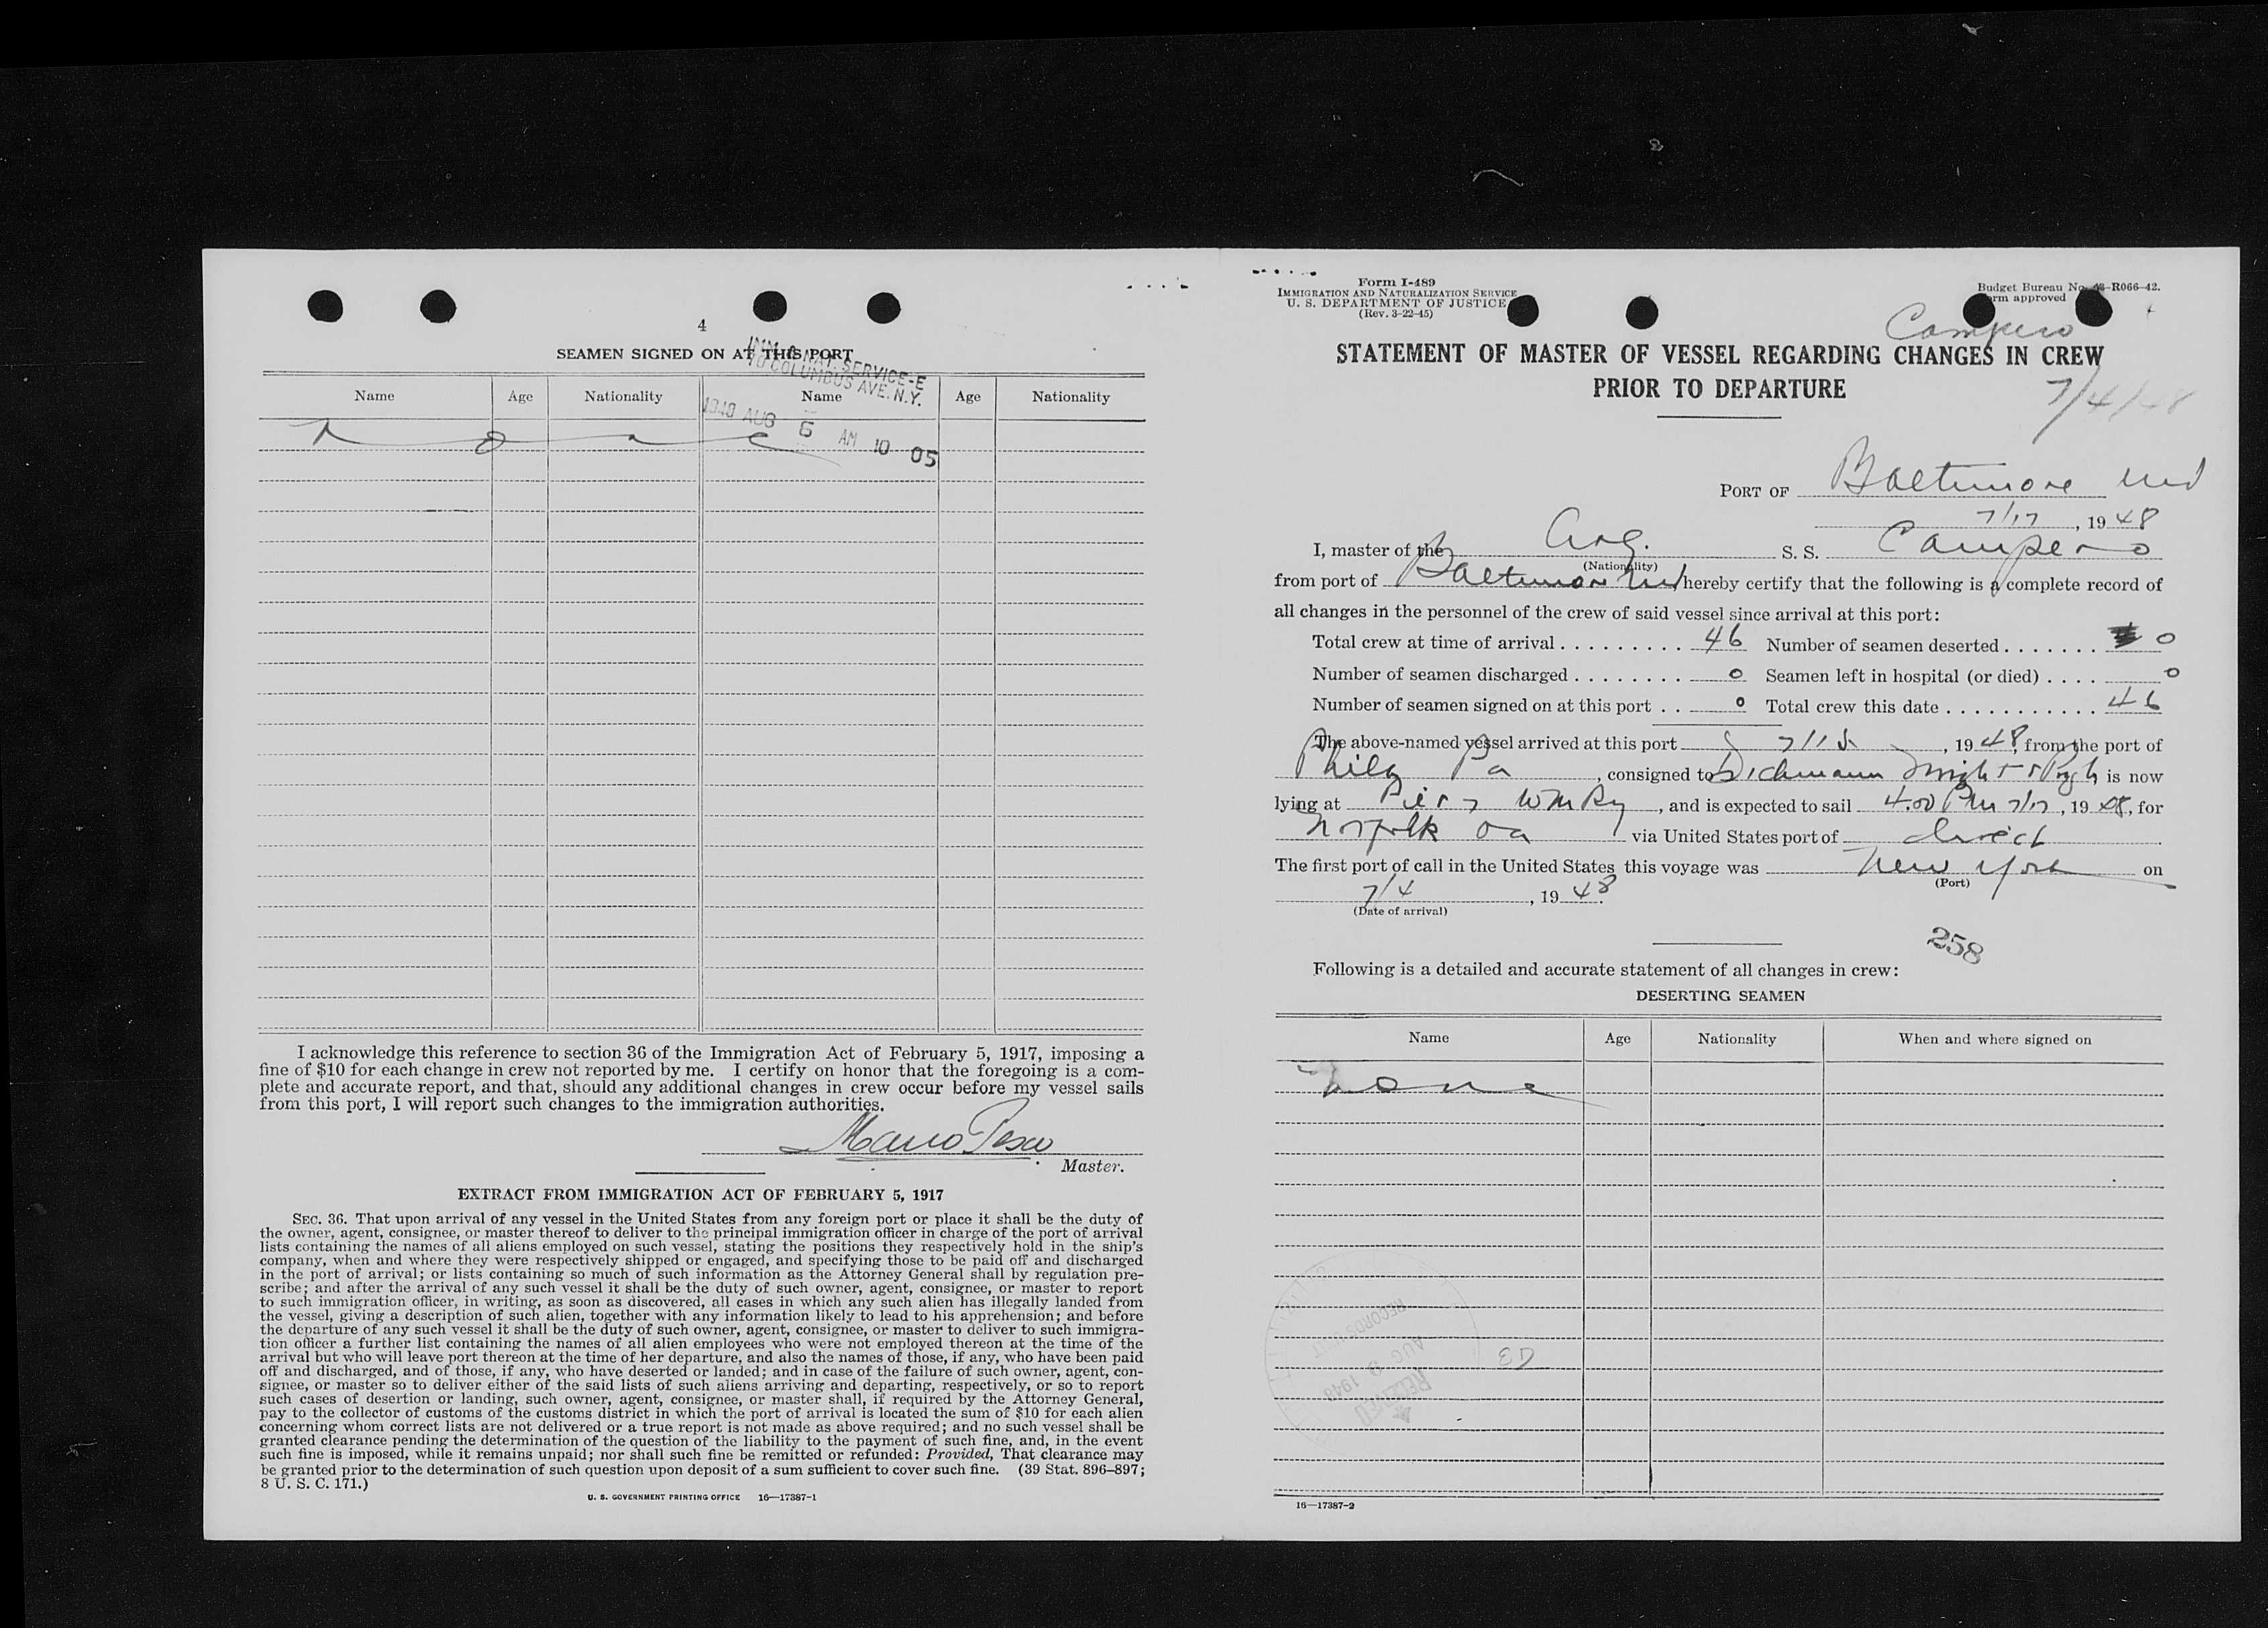 4
SEAMEN SIGNED ON AT THIS PORT
IMM. & NAT. SERVICE-E
70 COLUMBUS AVE. N.Y.
AUG 6 AM 10 05
Name Age Nationality Name Age Nationality
None
I acknowledge this reference to section 36 of the Immigration Act of February 5, 1917, imposing a
fine of $10 for each change in crew not reported by me. I certify on honor that the foregoing is a com-
plete and accurate report, and that, should any additional changes in crew occur before my vessel sails
from this port, I will report such changes to the immigration authorities.
Mario
Master.
EXTRACT FROM IMMIGRATION ACT OF FEBRUARY 5, 1917
SEC. 36. That upon arrival of any vessel in the United States from any foreign port or place it shall be the duty of
the owner, agent, consignee, or master thereof to deliver to the principal immigration officer in charge of the port of arrival
lists containing the names of all aliens employed on such vessel, stating the positions they respectively hold in the ship's
company, when and where they were respectively shipped or engaged, and specifying those to be paid off and discharged
in the port of arrival; or lists containing so much of such information as the Attorney General shall by regulation pre-
scribe; and after the arrival of any such vessel it shall be the duty of such owner, agent, consignee, or master to report
to such immigration officer, in writing, as soon as discovered, all cases in which any such alien has illegally landed from
the vessel, giving a description of such alien, together with any information likely to lead to his apprehension; and before
the departure of any such vessel it shall be the duty of such owner, agent, consignee, or master to deliver to such immigra-
tion officer a further list containing the names of all alien employees who were not employed thereon at the time of the
arrival but who will leave port thereon at the time of her departure, and also the names of those, if any, who have been paid
off and discharged, and of those, if any, who have deserted or landed; and in case of the failure of such owner, agent, con-
signee, or master so to deliver either of the said lists of such aliens arriving and departing, respectively, or so to report
such cases of desertion or landing, such owner, agent, consignee, or master shall, if required by the Attorney General,
pay to the collector of customs of the customs district in which the port of arrival is located the sum of $10 for each alien
concerning whom correct lists are not delivered or a true report is not made as above required; and no such vessel shall be
granted clearance pending the determination of the question of the liability to the payment of such fine, and, in the event
such fine is imposed, while it remains unpaid; nor shall such fine be remitted or refunded: Provided, That clearance may
be granted prior to the determination of such question upon deposit of a sum sufficient to cover such fine. (39 Stat. 896–897;
8 U. S. C. 171.)
U. S. GOVERNMENT PRINTING OFFICE 16—17387-1
Form I-489
IMMIGRATION AND NATURALIZATION SERVICE
U. S. DEPARTMENT OF JUSTICE
(Rev. 3-22-45)
Budget Bureau No. 43-R066-42.
Form approved
Campero
STATEMENT OF MASTER OF VESSEL REGARDING CHANGES IN CREW
PRIOR TO DEPARTURE
7/4/48
PORT OF Baltimore Md
7/17, 1948
I, master of the Arg. S. S. Campero
(Nationality)
from port of Baltimore Md hereby certify that the following is a complete record of
all changes in the personnel of the crew of said vessel since arrival at this port:
Total crew at time of arrival . . . . . . . . . 46 Number of seamen deserted . . . . . . . 0
Number of seamen discharged . . . . . . . . 0 Seamen left in hospital (or died) . . . . 0
Number of seamen signed on at this port . . 0 Total crew this date . . . . . . . . . . . 46
The above-named vessel arrived at this port 7/15, 1948, from the port of
Phila Pa, consigned to Dichmann Wright & Pugh is now
lying at Pier 7 WMRy, and is expected to sail 4.00 PM 7/17, 1948, for
Norfolk Va via United States port of direct
The first port of call in the United States this voyage was New York on
(Port)
7/4, 1948.
(Date of arrival)
258
Following is a detailed and accurate statement of all changes in crew:
DESERTING SEAMEN
Name Age Nationality When and where signed on
None
RECEIVED
AUG 9 1948
RECORDS UNIT
16—17387-2